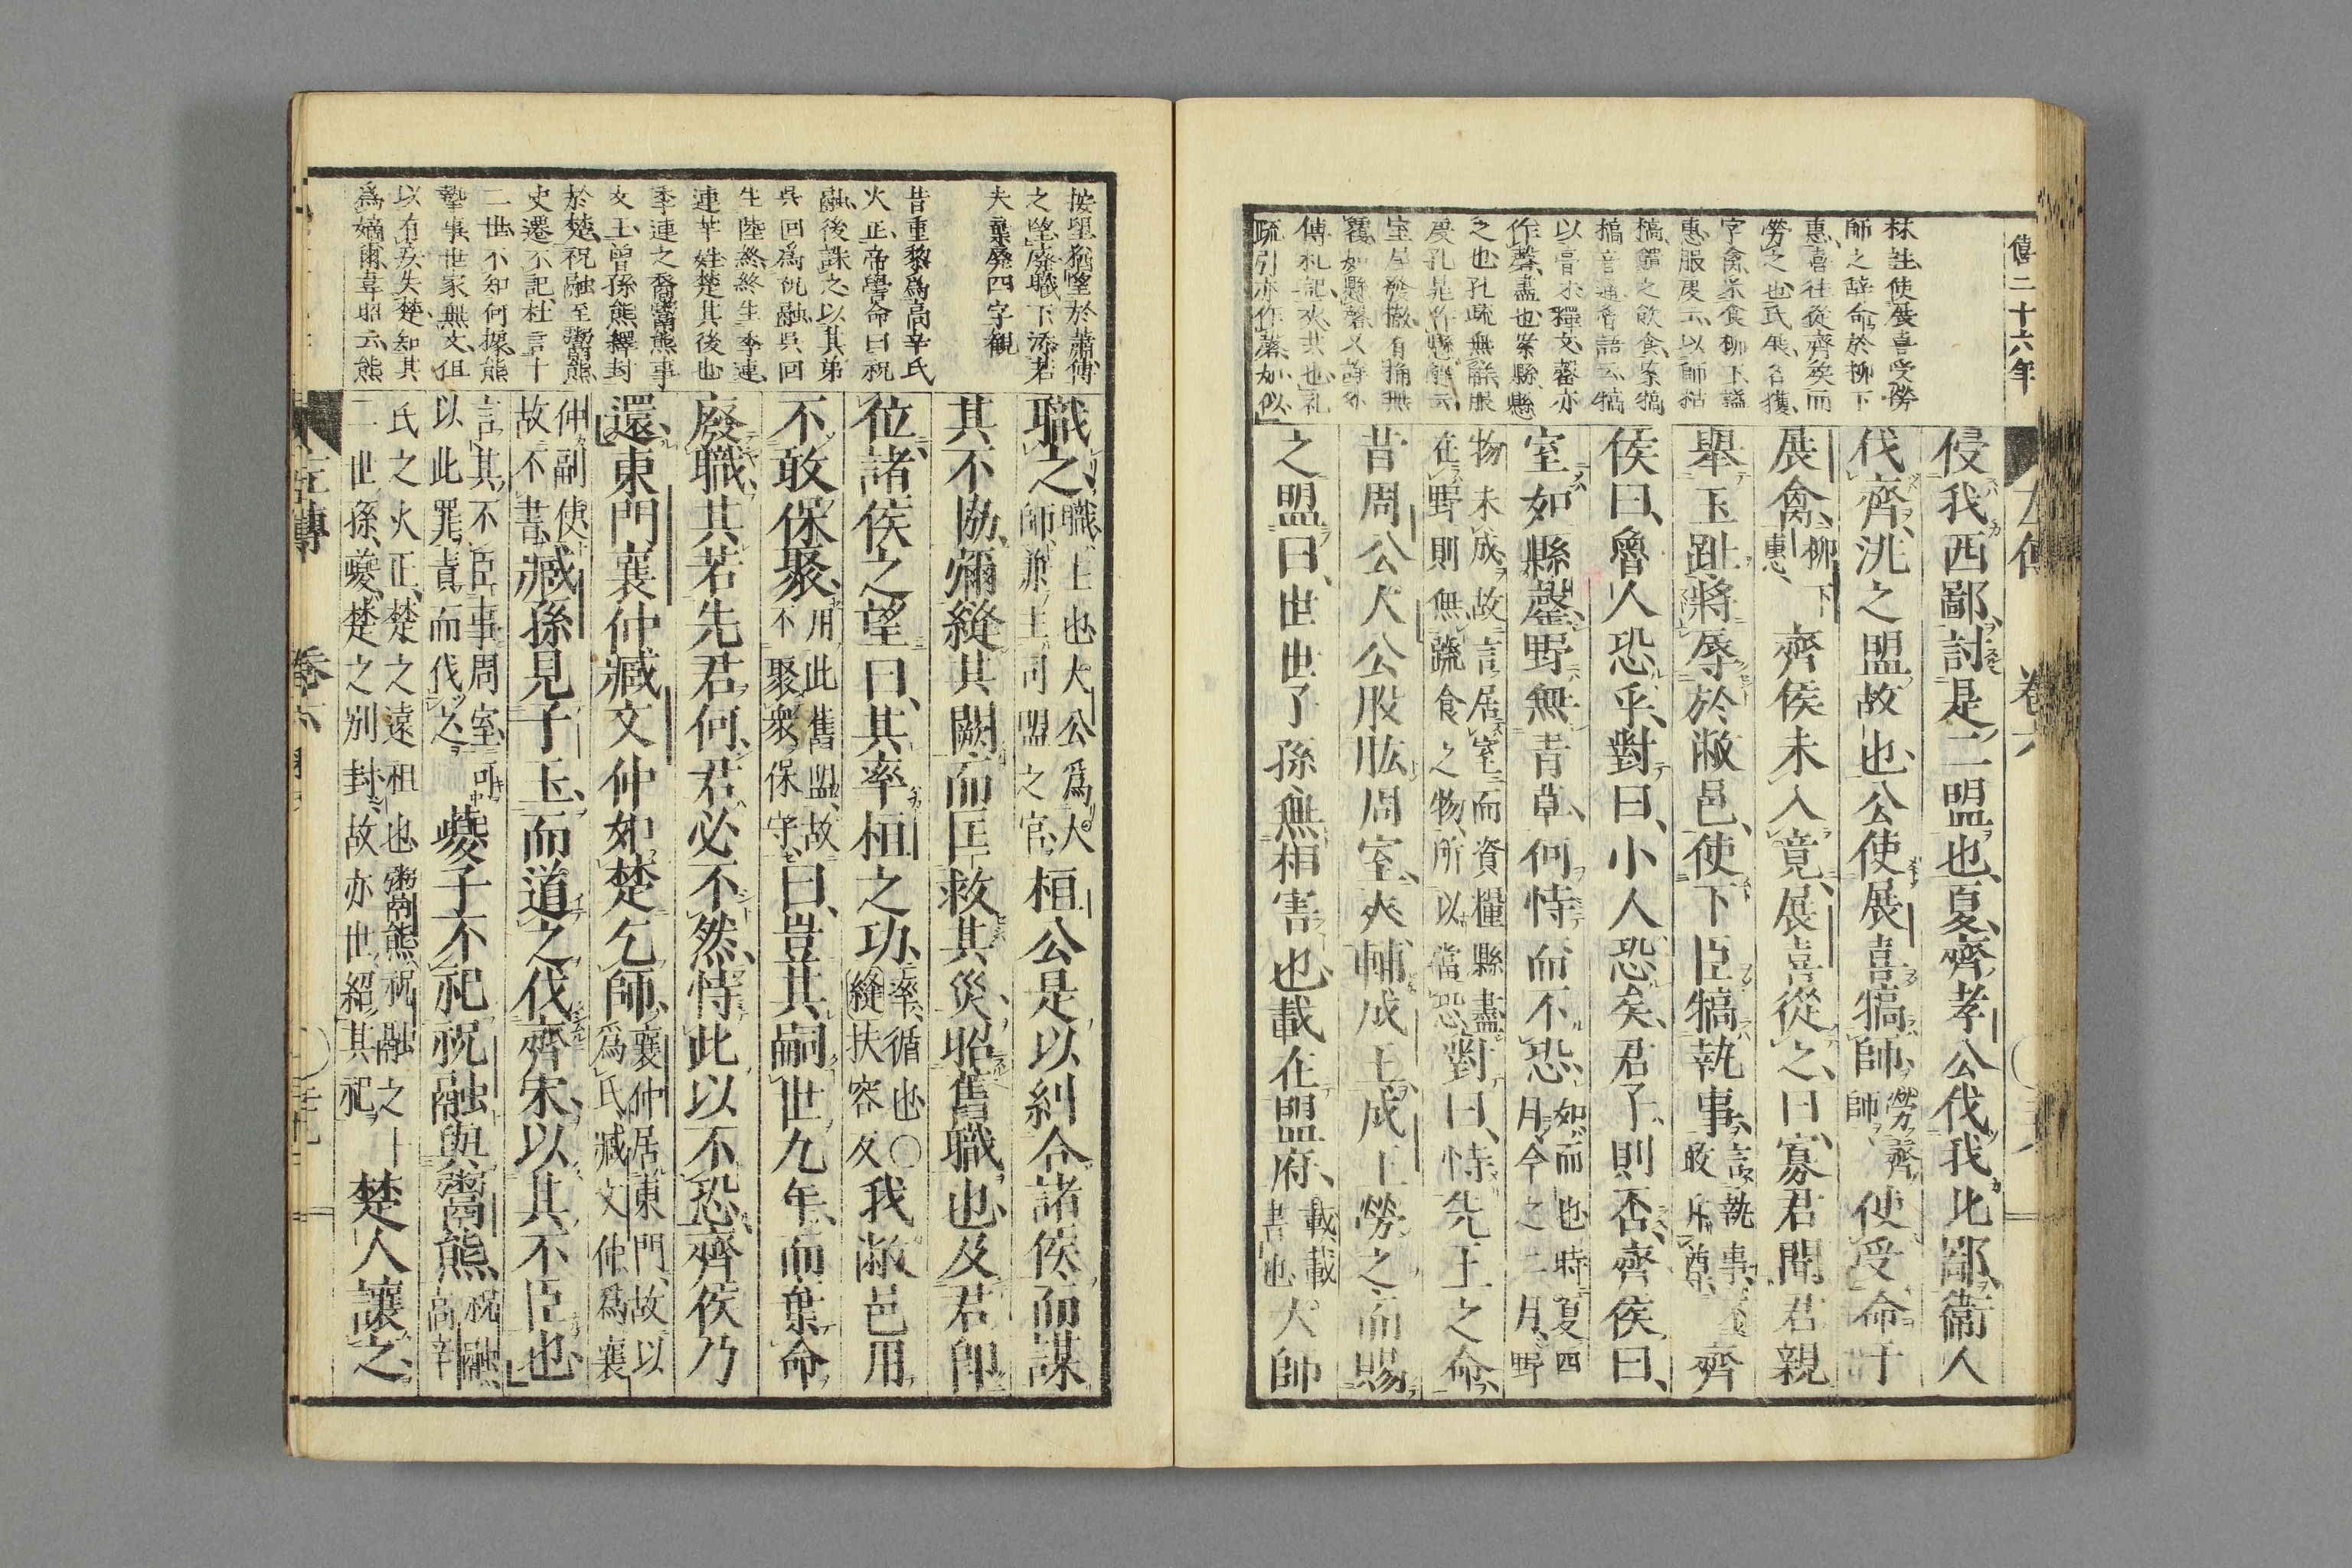 僖二十六年
林註使展喜受勞
師之辭命於柳下
惠喜往從齊矦而
勞之也氏展名獲
字禽采食柳下諡
惠服虔云以師枯
槁饋之飲食案犒
槁音通魯語云犒
以膏沐釋文罄亦
作磬盡也案縣縣
之也孔疏無辭服
虔孔晁作懸磬云
室屋發撤有桷無
覆如縣磬又詳外
傳札記夾共也禮
疏引亦作落如似
侵我西鄙討是二盟也夏齊孝公伐我北鄙衞人
伐齊洮之盟故也公使展喜犒師勞齊師使受命于
展禽柳下惠齊侯未入竟展喜從之曰寡君聞君親
舉玉趾將辱於敝邑使下臣犒執事言執事不敢斥尊齊
侯曰魯人恐乎對曰小人恐矣君子則否齊侯曰
室如縣罄野無青草何恃而不恐如而也時夏四月今之二月野
物未成故言居室而資糧縣盡在野則無蔬食之物所以當恐對曰恃先王之命
昔周公大公股肱周室夾輔成王成王勞之而賜
之盟曰世世子孫無相害也載在盟府載載書也大師
按望猶望於蕭傳
之望廢職下添若
夫棄廢四字觀
昔重黎爲高辛氏
火正帝嚳命曰祝
融後誅之以其弟
吳回爲祝融吳回
生陸終終生季連
連羋姓楚其後也
季連之裔鬻熊事
文王曾孫熊繹封
於楚祝融至鬻熊
史遷不記杜言十
二世不知何據熊
摯事世家無文但
以有疾失楚知其
爲嫡爾韋昭云熊
職之職主也大公爲大師兼主司盟之官桓公是以糾合諸侯而謀
其不協彌縫其闕而匡救其災昭舊職也及君即
位諸侯之望曰其率桓之功率循也〇縫扶容反我敝邑用
不敢保聚用此舊盟故不聚衆保守曰豈其嗣世九年而棄命
廢職其若先君何君必不然恃此以不恐齊侯乃
還東門襄仲臧文仲如楚乞師襄仲居東門故以爲氏臧文仲爲襄
仲副使故不書臧孫見子玉而道之伐齊宋以其不臣也
言其不臣事周室可以此罪責而伐之夔子不祀祝融與鬻熊祝融高辛
氏之火正楚之遠祖也鬻熊祝融之十二世孫夔楚之別封故亦世紹其祀楚人讓之
左傳 卷六